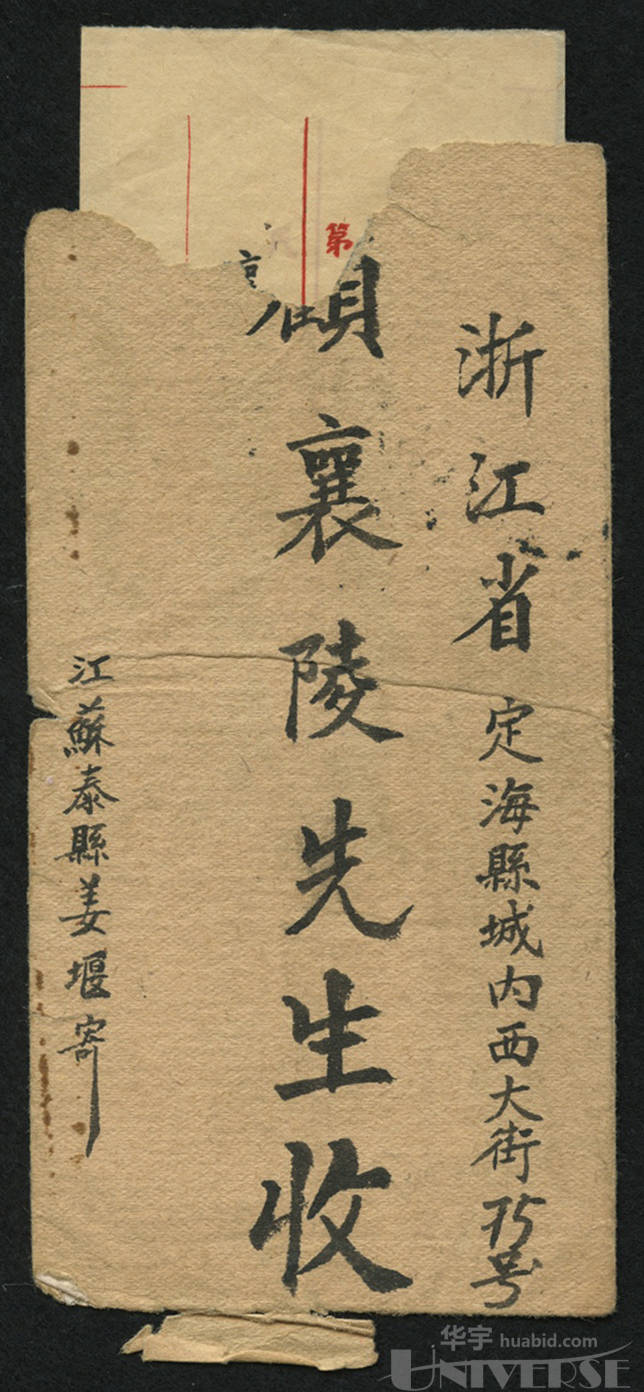 浙江省定海縣城内西大街75号
顧襄陵先生收
江蘇泰縣姜堰寄
第
华宇 huabid.com
UNIVERSE